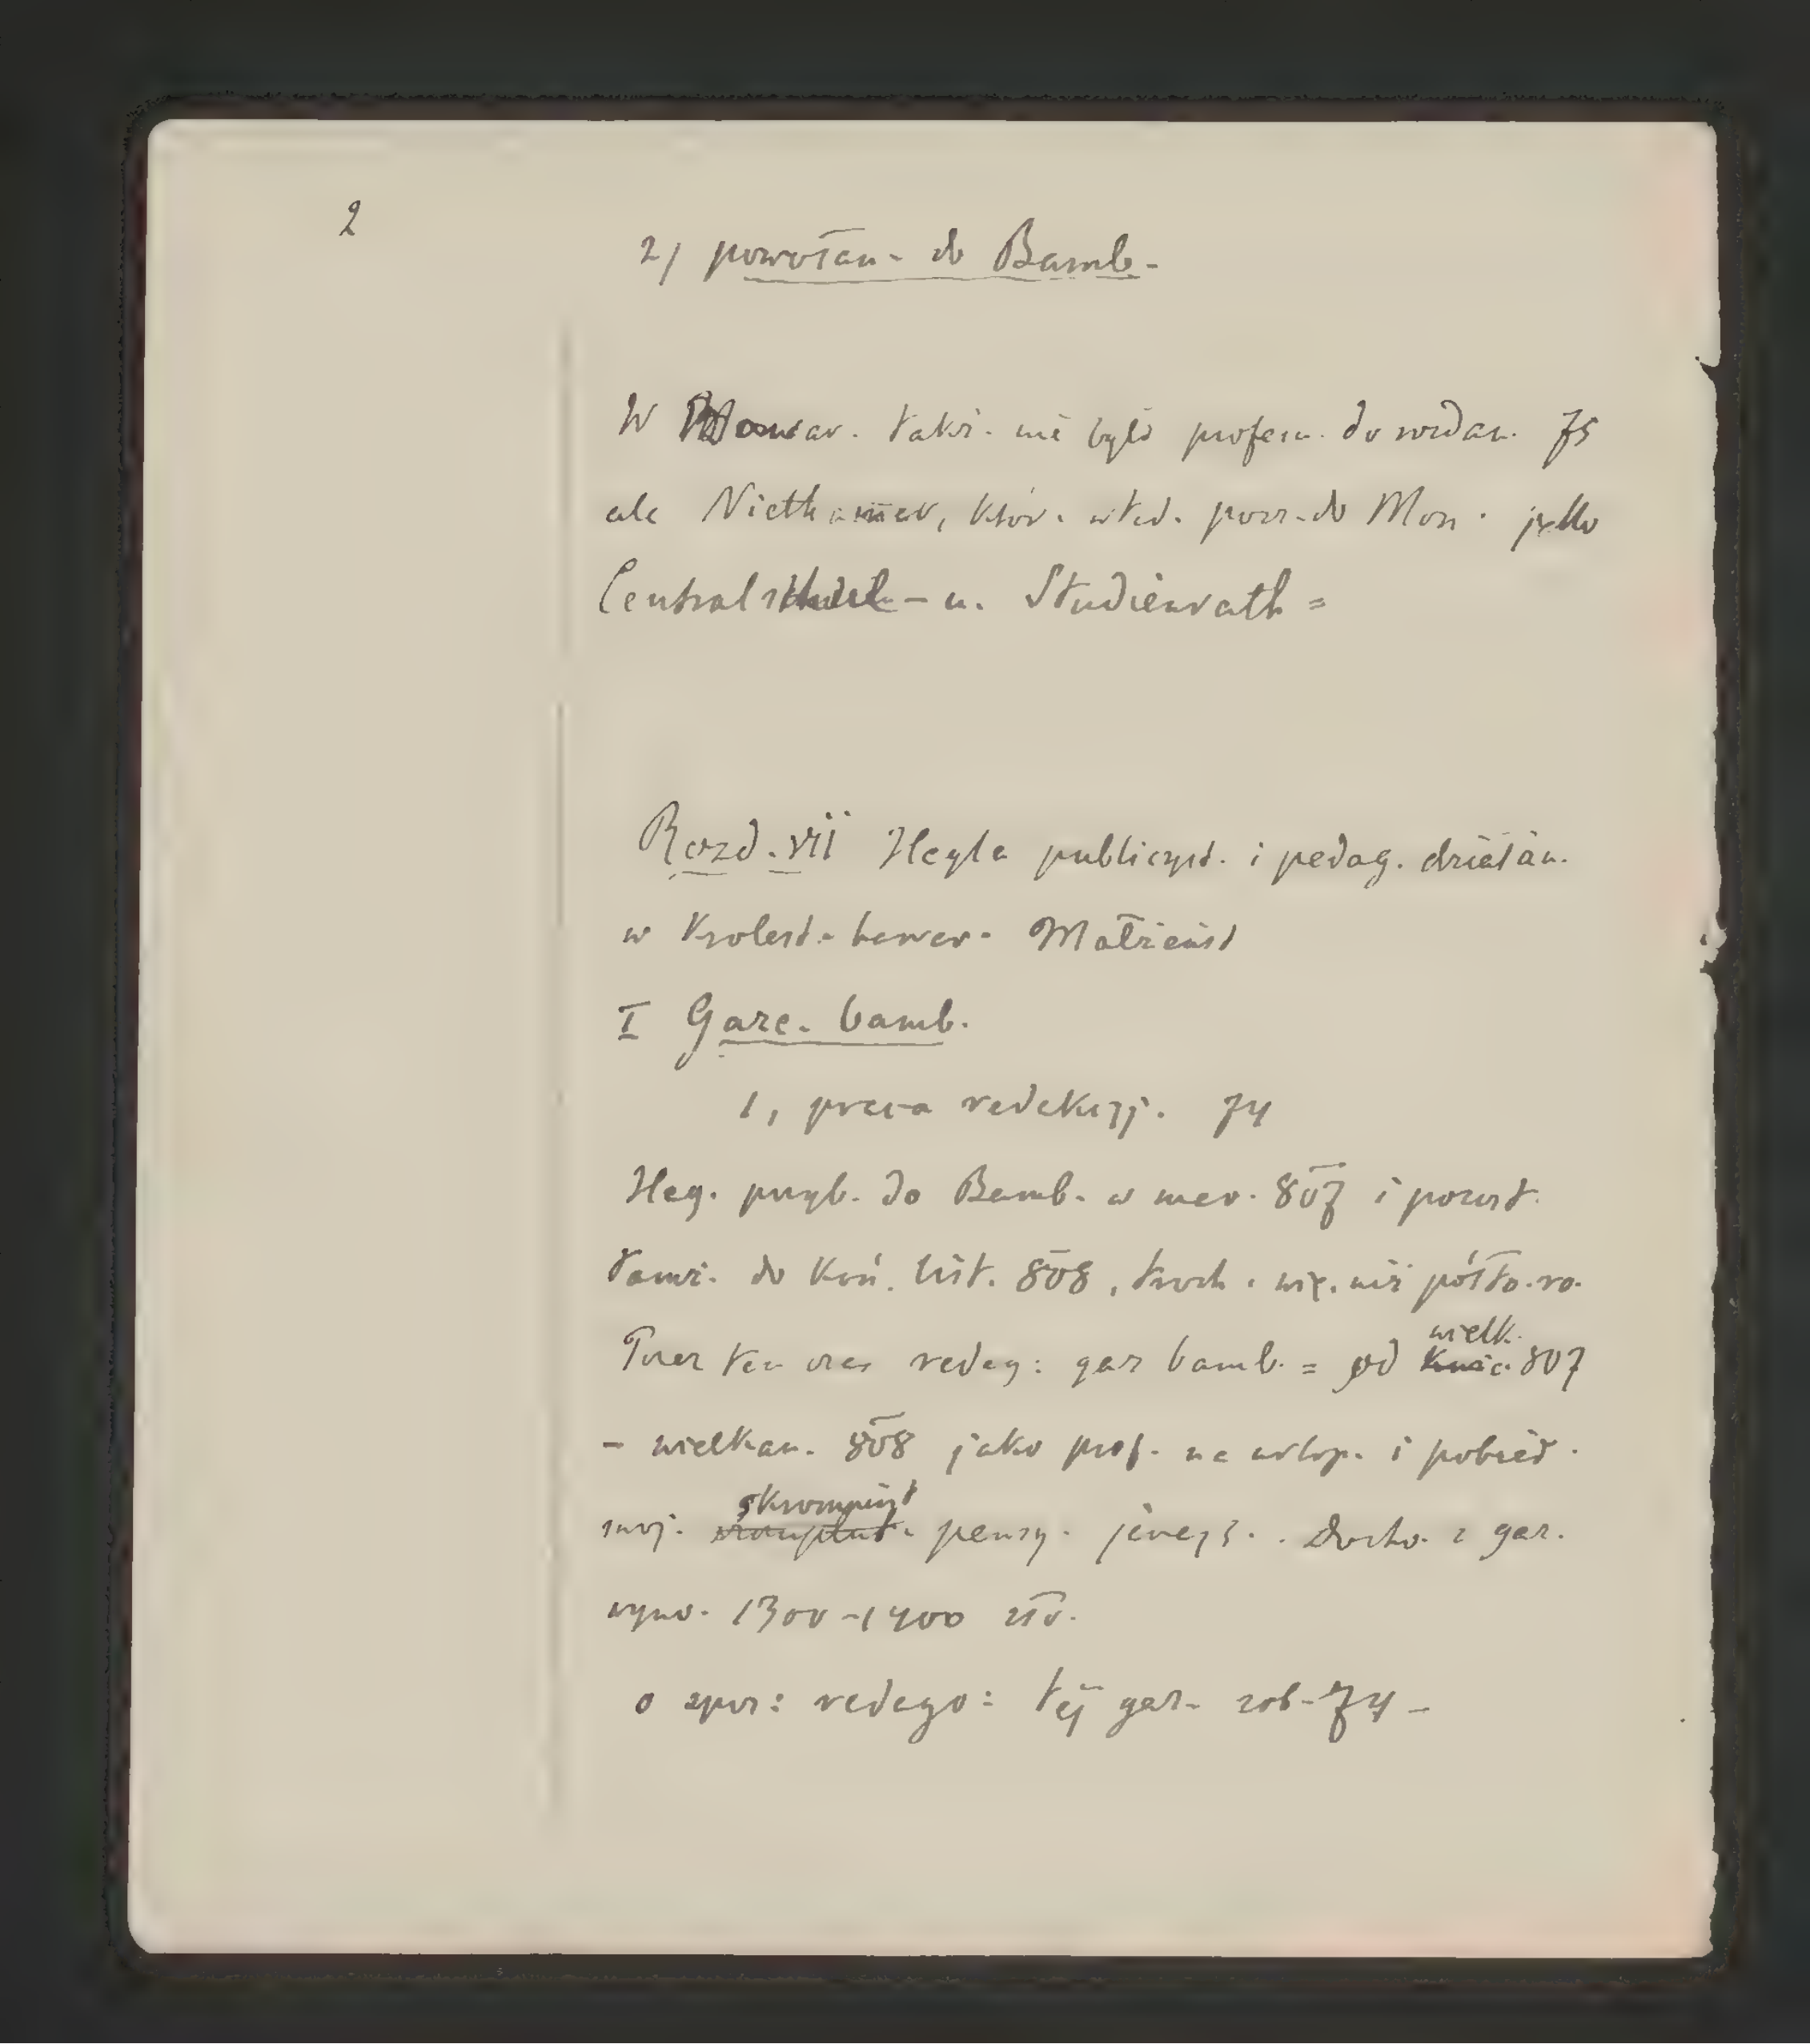 2
2) powołan- do Bamb-
W Bawar. takż. nie było profesu. do rozdan. 75
ale Niethammer, któr. wted. pow- do Mon. jako
Centralschul - u. Studienrath =
Rozd. VII Hegla publicyst. i pedag. działan.
w Krolest- bawar- Małżeńst
I Gaze- bamb.
1, praca redakcyj. 74
Heg. przyb. do Bamb. w mar. 807 i pozost.
tamż. do Koń. list. 808, troch. więc. niż półto. ro.
Przez ten czas redag: gaz bamb. = od wielk. 807
- wielkan. 808 jako prof. na urlop. i pobier.
swoj. skromniut pensy. jenejs. . Docho. z gaz.
wyno. 1300-1400 zło.
o spos: redago: tej gaz- zob- 74 -